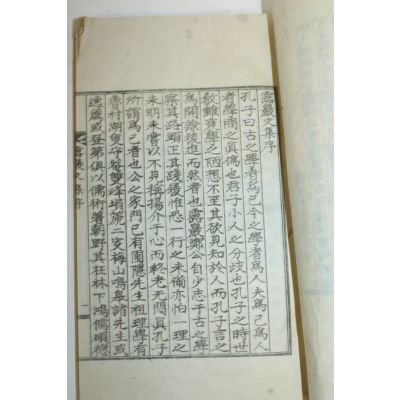 露巖文集序
孔子曰古之學者爲己今之學者爲人夫爲己爲人
者學問之眞僞也君子小人之分歧也孔子之時世
敎雖穿學之陋想不至其欲見知於人而孔子言之
爲開諒後進而然者也露巖鄭公自少志于古之學
察其路頭正其踐履惟恐一行之未備亦怕一理之
未明未嘗以不見稱揚介于心而終老无悶眞孔子
所謂爲己者也公之家門已有圃隱先生祖理學有
魯村湖叟守菴雙峰塤篪二叟梅山鳴皋諸先生或
逸薦或登第俱以儒術著朝野其在林下鴻儒碩德
露巖文集序
一